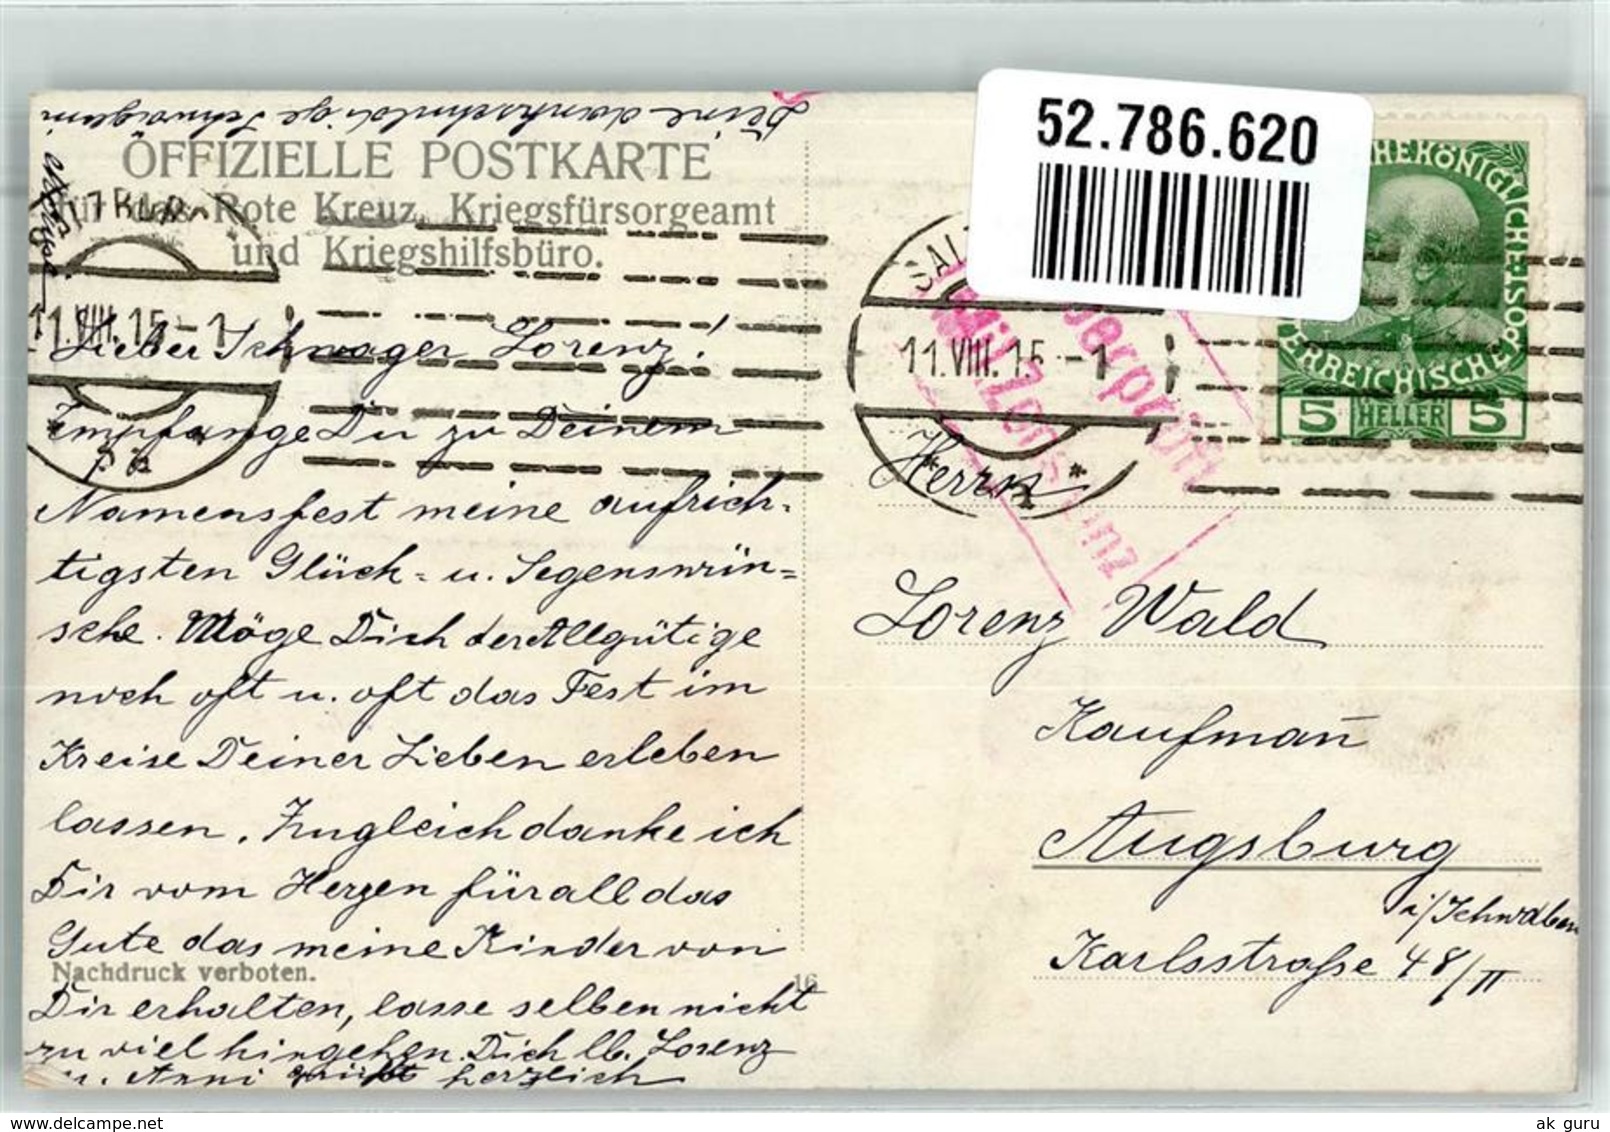 52.786.620
Deine dankschuldige Schwägerin
ÖFFIZIELLE POSTKARTE
für das Rote Kreuz, Kriegsfürsorgeamt
und Kriegshilfsbüro.
11.VIII.15-1
Lieber Schwager Lorenz!
Empfange Du zu Deinem
Namensfest meine aufrich-
tigsten Glück- u. Segenswün=
sche. Möge Dich der Allgütige
noch oft u. oft das Fest im
Kreise Deiner Lieben erleben
lassen. Zugleich danke ich
Dir vom Herzen für all das
Gute das meine Kinder von
Nachdruck verboten.
16
Dir erhalten, lasse selben nicht
zu viel hingehen. Dich lb. Lorenz
u. Anni grüßt herzlich
11.VIII.15-1
HEKÖNIGLICHE POST
ERREICHISCHE
5 HELLER 5
überprüft
Herrn
Lorenz Wald
Kaufmañ
Augsburg
i/Schwaben
Karlsstraße 48/II
ak guru